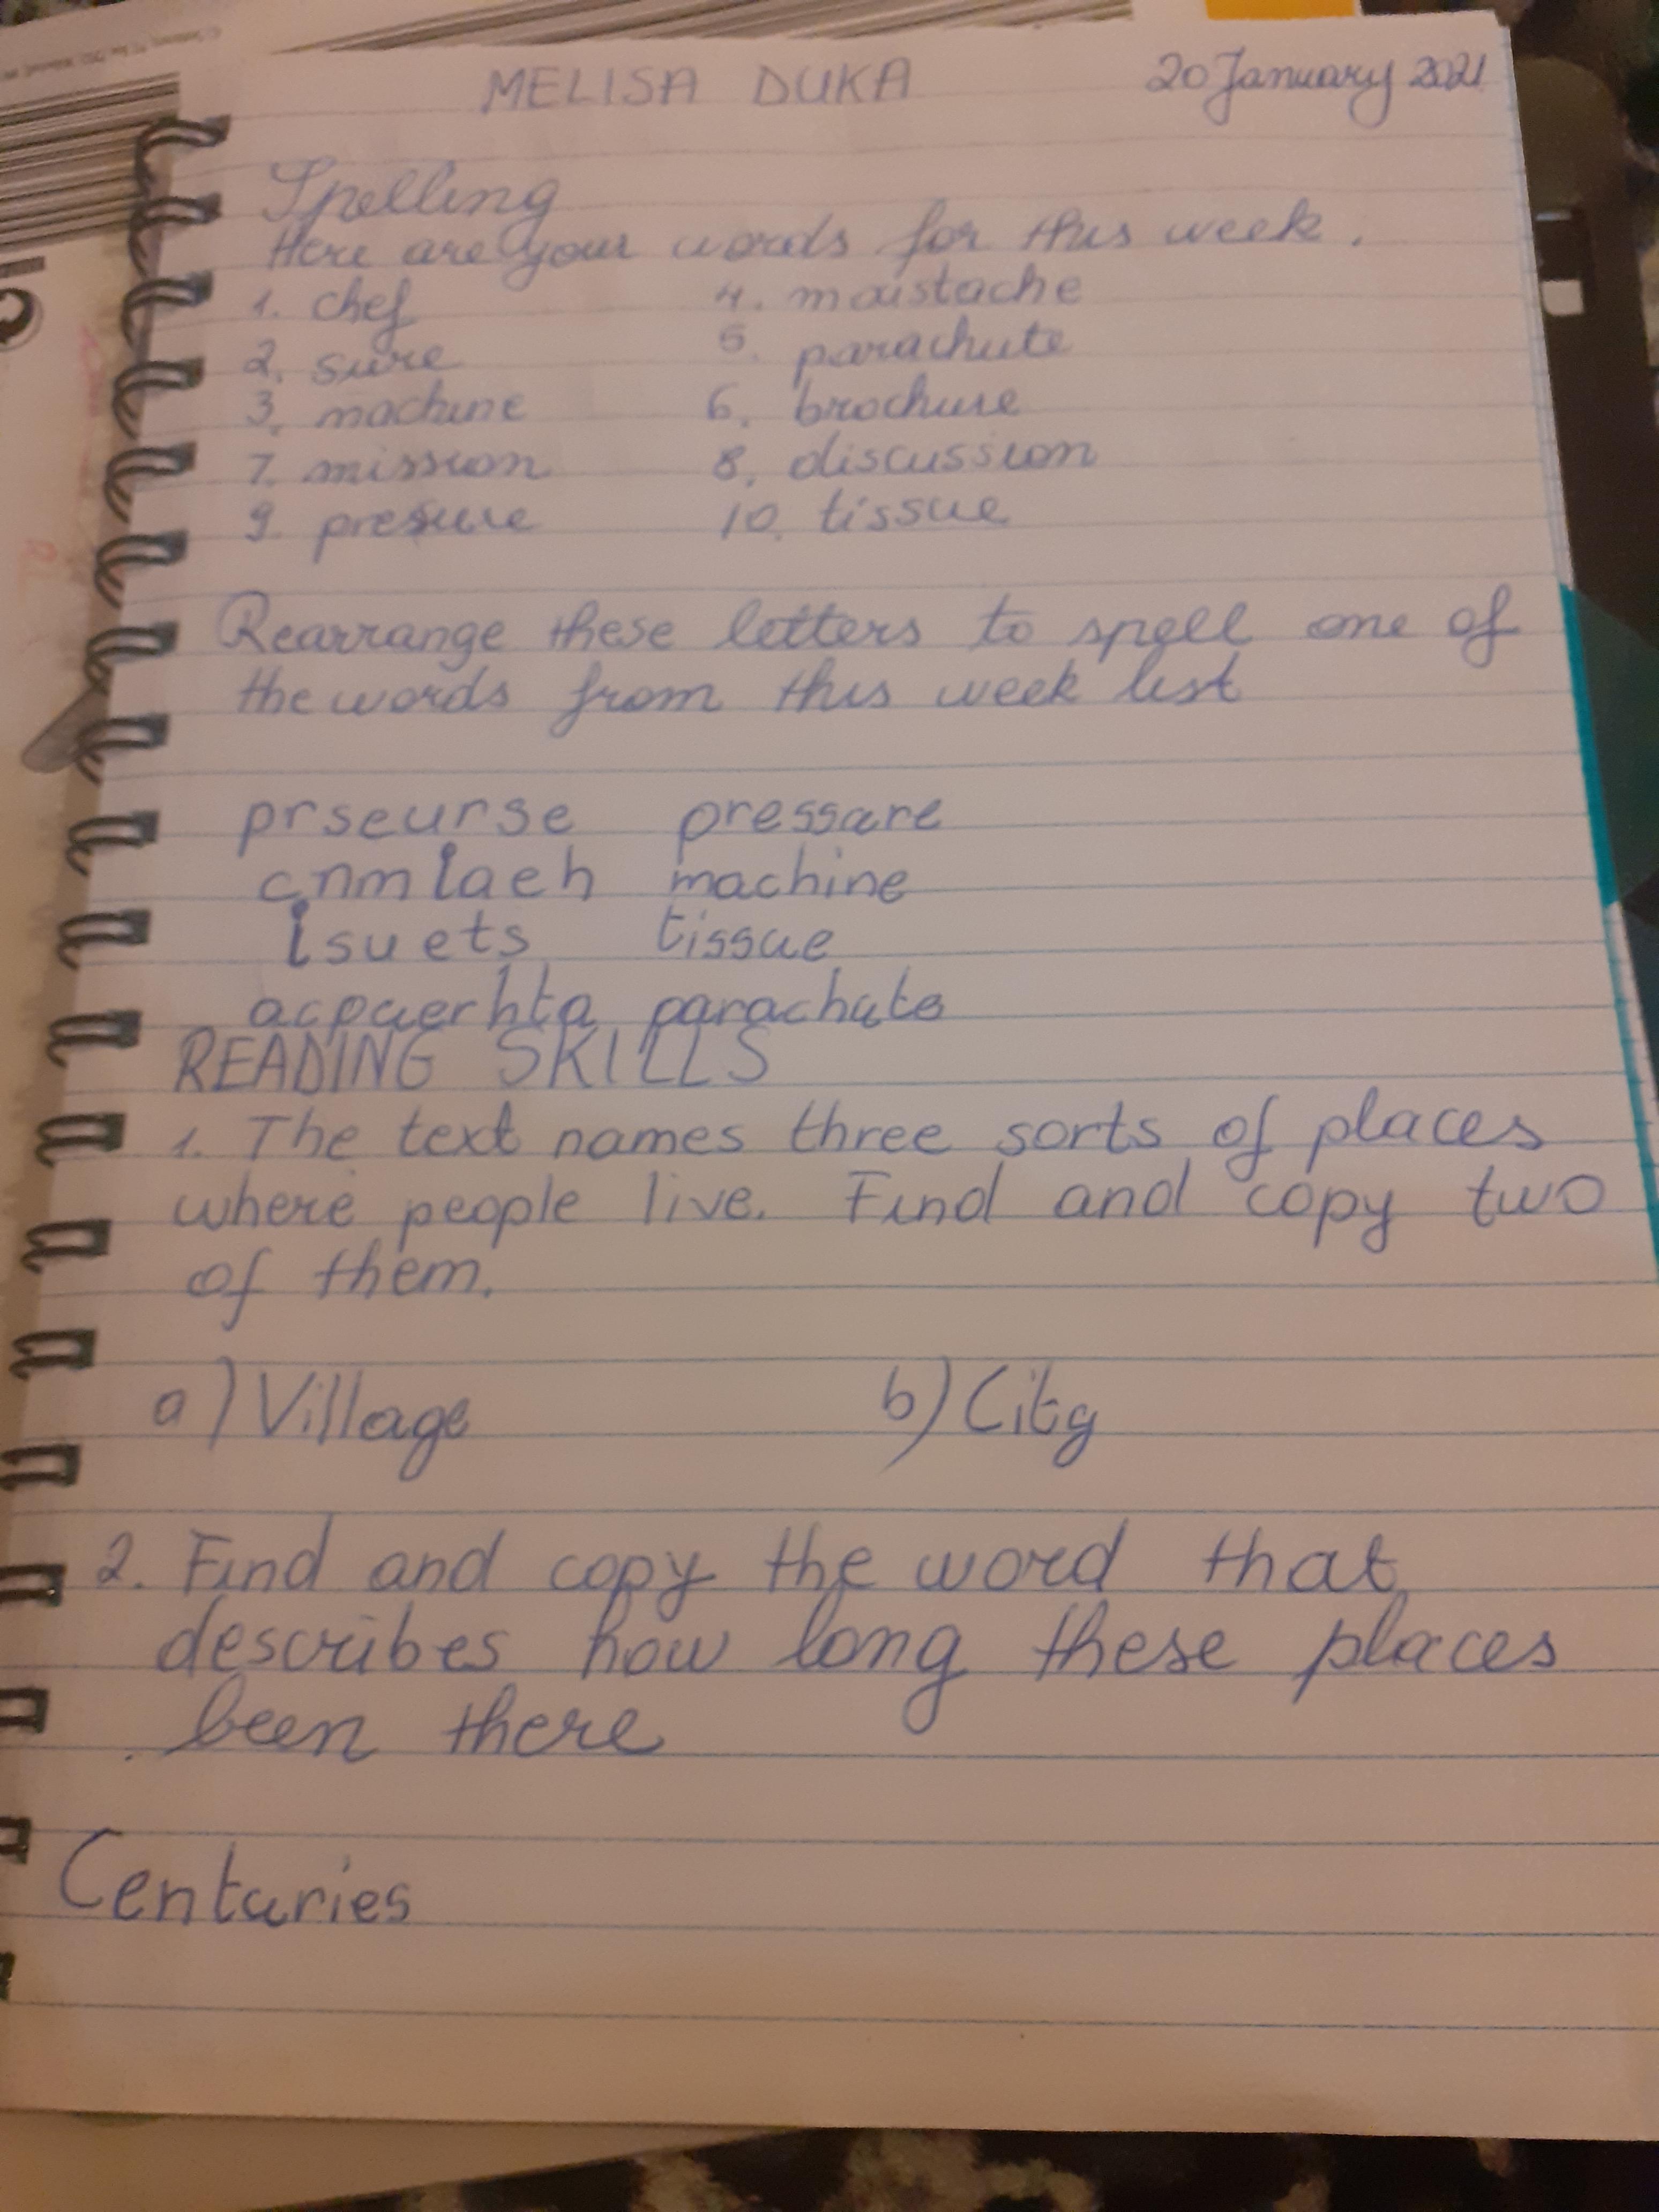 MELISA DUKA 20 January 2021
Spelling
Here are your words for this week.
1. chef 4. moustache
2. sure 5. parachute
3. machine 6. brochure
7. mission 8. discussion
9. presure 10. tissue
Rearrange these letters to spell one of
the words from this week list
prseurse pressure
cnmiaeh machine
isuets tissue
acpuerhta parachute
READING SKILLS
1. The text names three sorts of places
where people live. Find and copy two
of them.
a) Village b) City
2. Find and copy the word that
describes how long these places
been there
Centuries